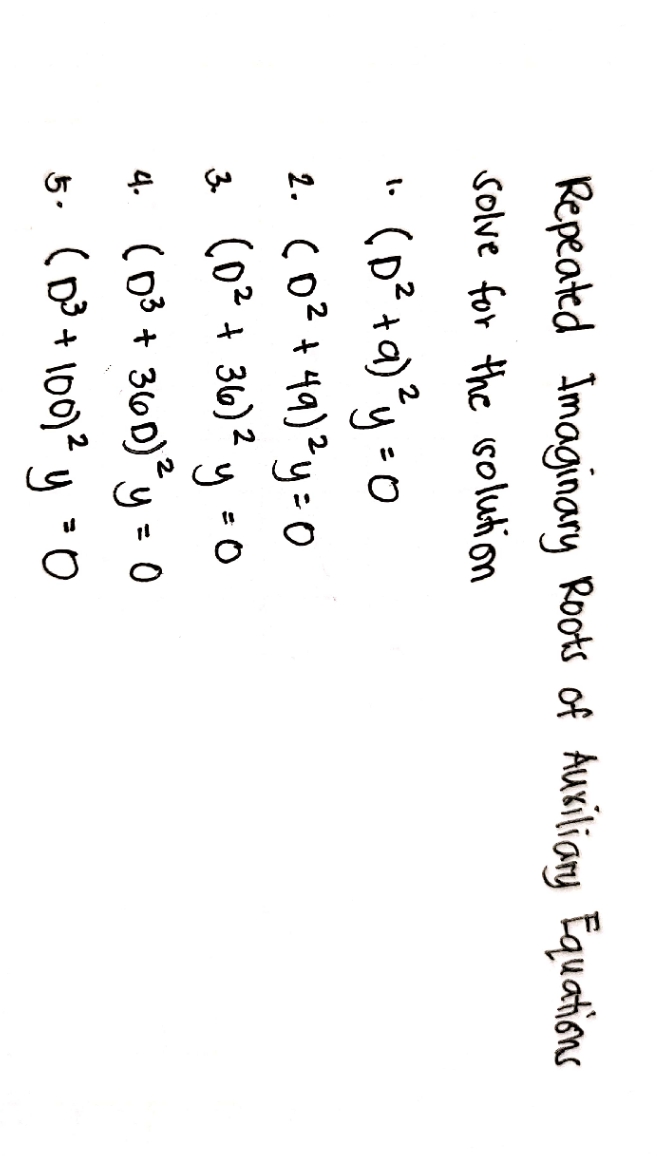 Repeated Imaginary Roots of Auxiliary Equations
Solve for the solution
1. (D² + 9)² y = 0
2. (D² + 49)² y = 0
3. (D² + 36)² y = 0
4. (D³ + 36D)² y = 0
5. (D³ + 100)² y = 0